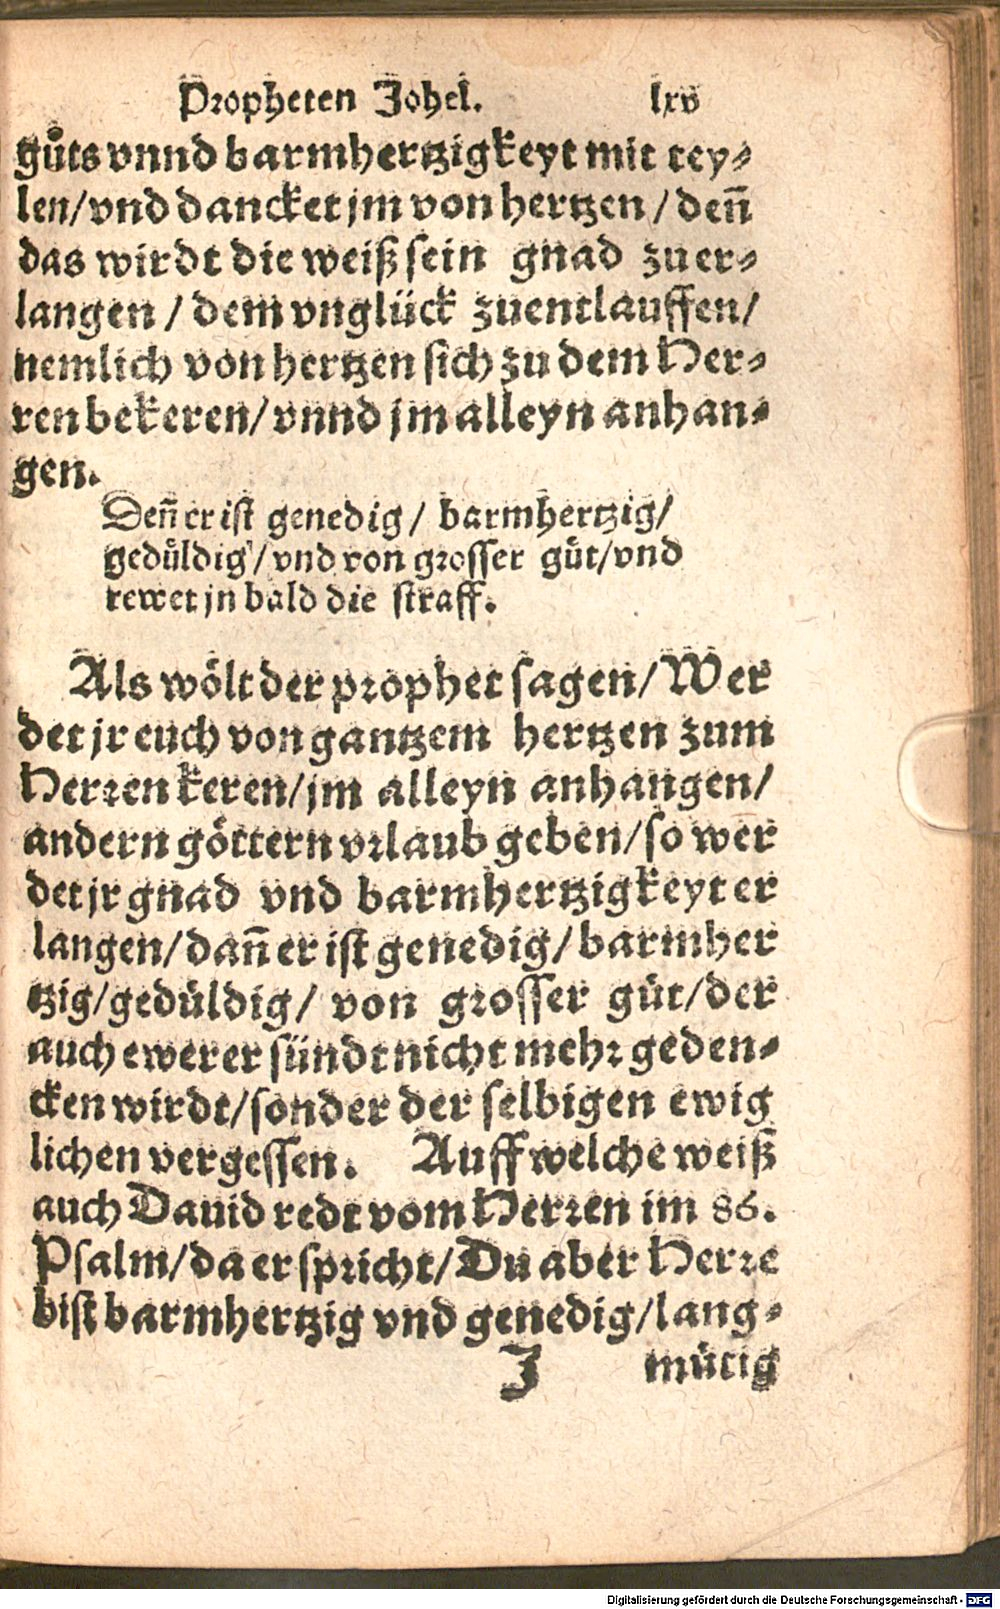 Propheten Johel. lxv
gůts vnnd barmhertzigkeyt mit tey⸗
len/vnd dancket jm von hertzen/denn̄
das wirdt die weiß sein gnad zu er⸗
langen/dem vnglück zuentlauffen/
nemlich von hertzen sich zu dem Her⸗
ren bekeren/vnnd jm alleyn anhan⸗
gen.
Den̄ er ist genedig/ barmhertzig/
gedüldig/vnd von grosser güt/vnd
rewet jn bald die straff.
Als wölt der prophet sagen/Wer
det jr euch von gantzem hertzen zum
Herren keren/jm alleyn anhangen/
andern göttern vrlaub geben/so wer
det jr gnad vnd barmhertzigkeyt er
langen/dan̄ er ist genedig/barmher
tzig/gedüldig/ von grosser güt/der
auch ewer er sündt nicht mehr geden⸗
cken wirdt/sonder der selbigen ewig
lichen vergessen. Auff welche weiß
auch Dauid redt vom Herren im 86.
Psalm/da er spricht/Du aber Herre
bist barmhertzig vnd genedig/lang⸗
J mütig
Digitalisierung gefördert durch die Deutsche Forschungsgemeinschaft - DFG